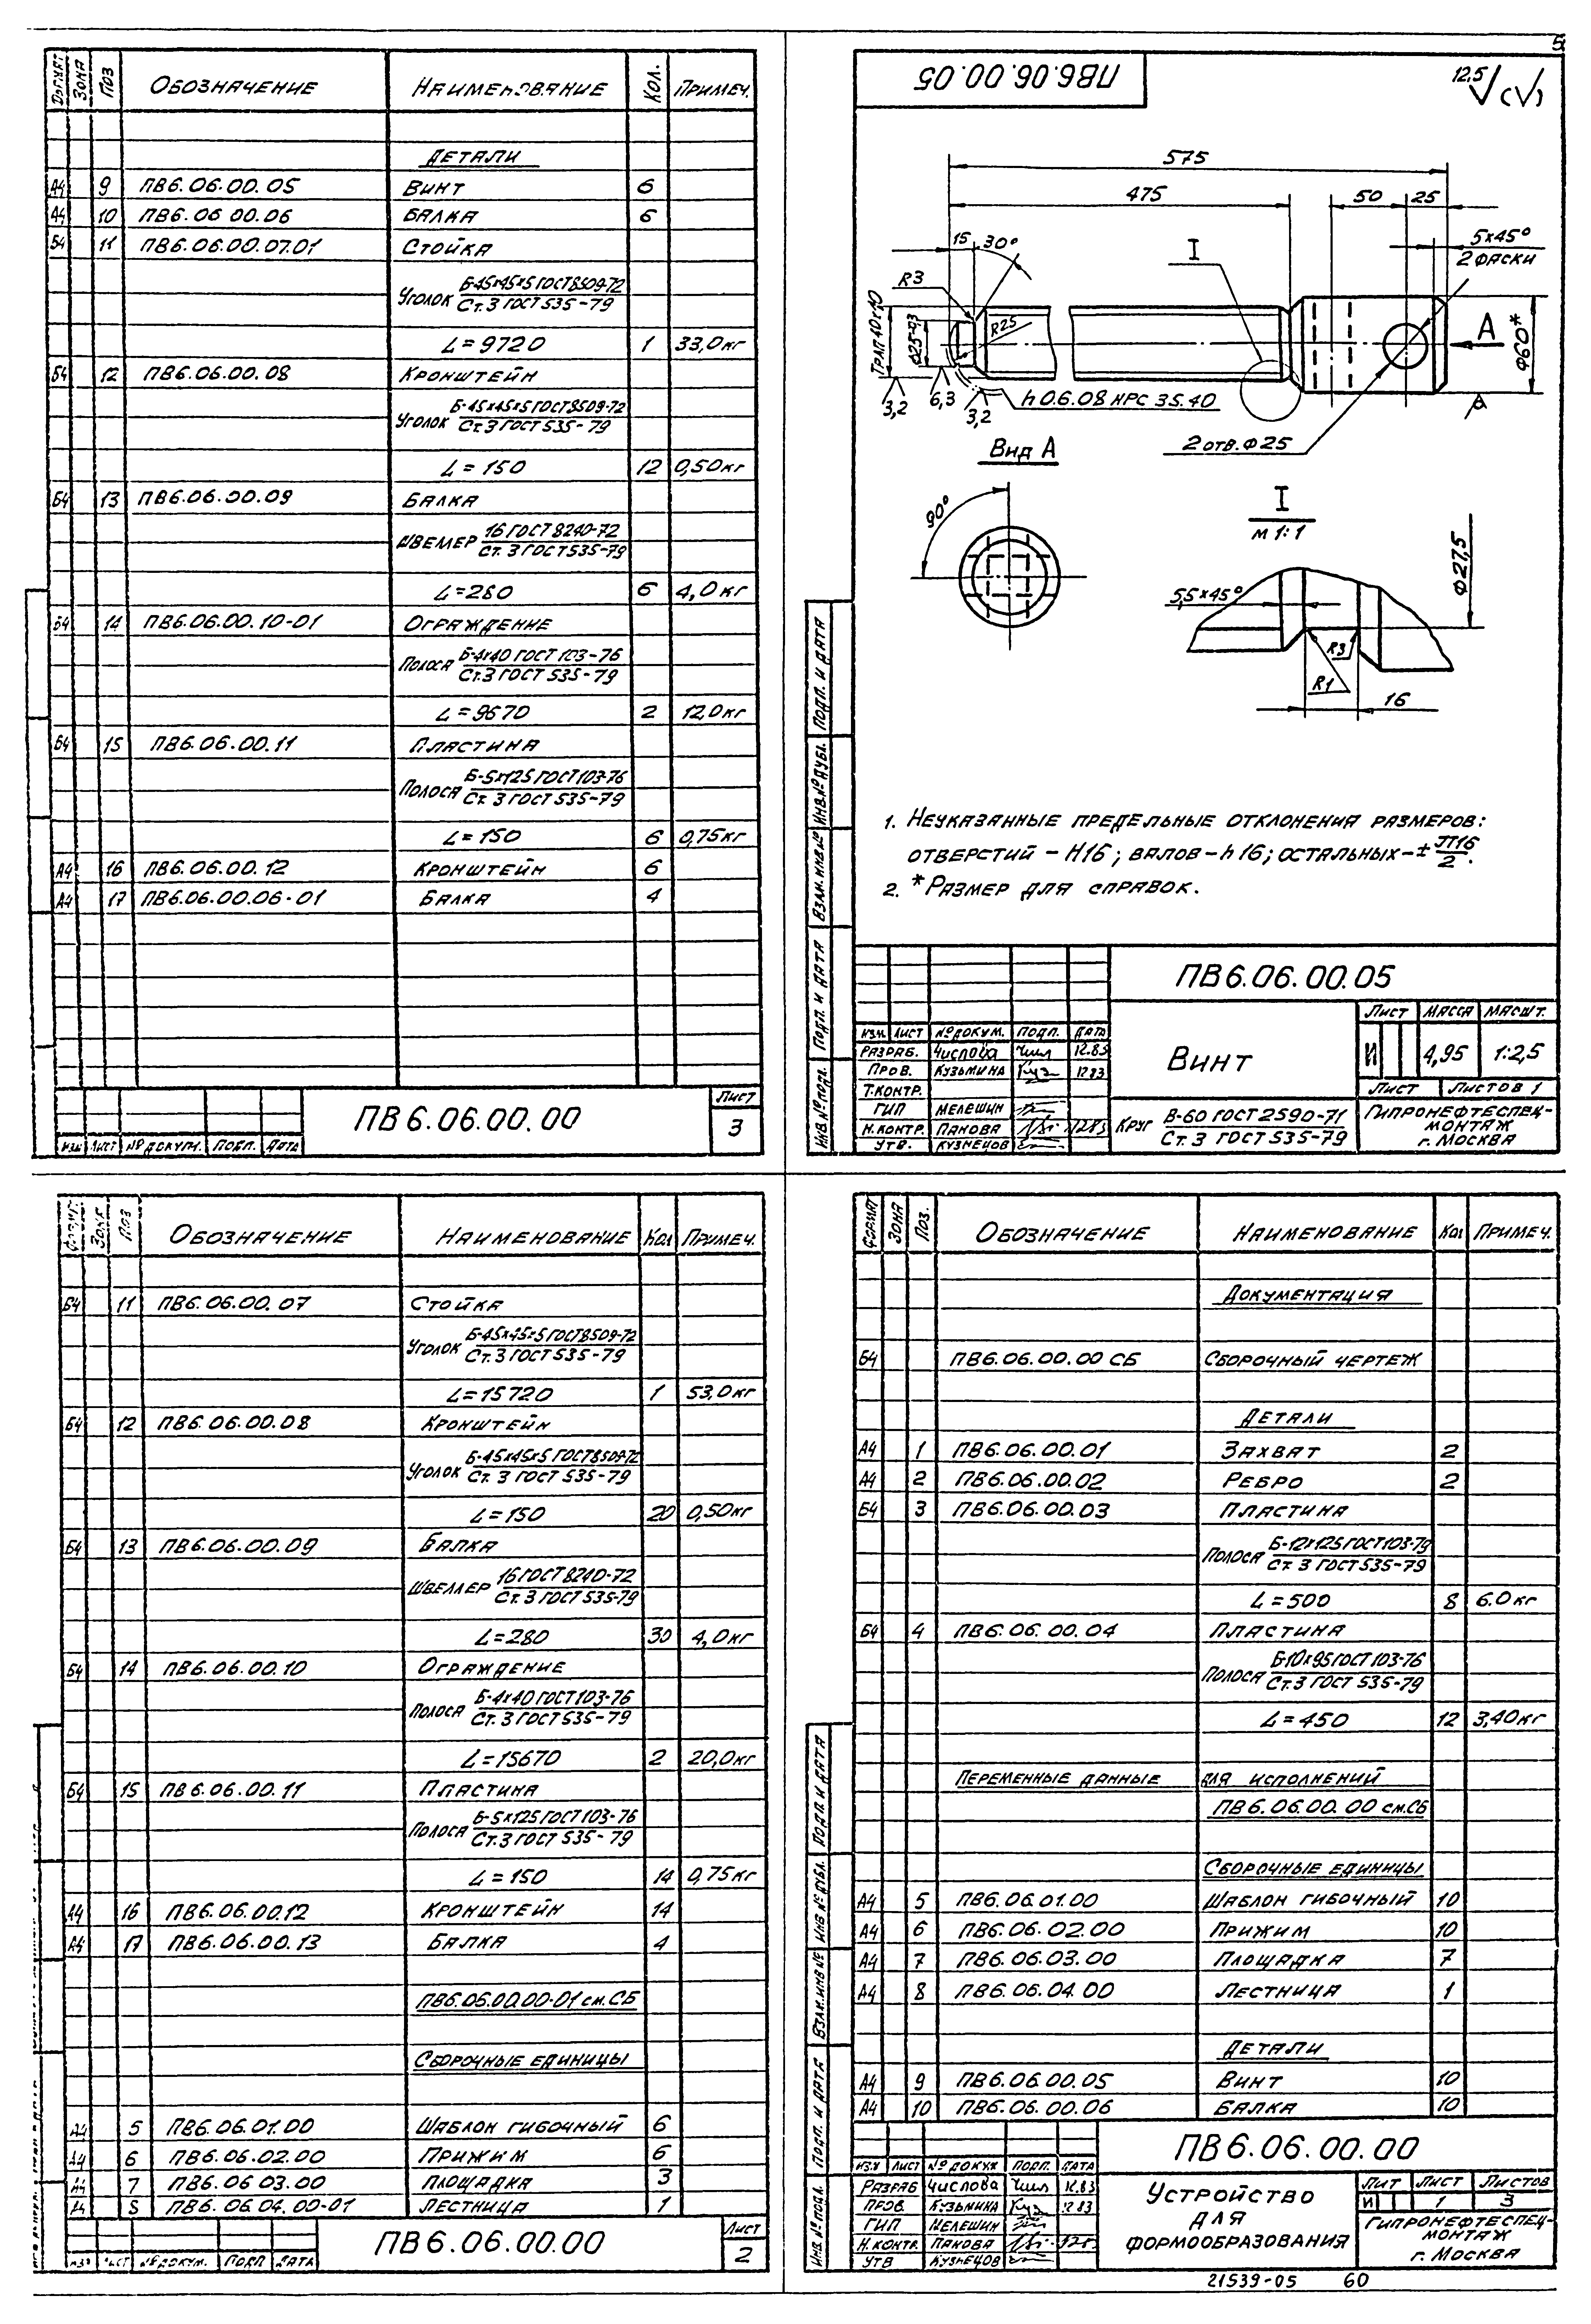 5
Формат Зона Поз Обозначение Наименование Кол. Примеч.
Детали
А4 9 ПВ6.06.00.05 Винт 6
А4 10 ПВ6.06 00.06 Балка 6
Б4 11 ПВ6.06.00.07.01 Стойка
Уголок Б-45х45х5 ГОСТ 8509-72
Ст.3 ГОСТ 535-79
L=9720 1 33,0кг
Б4 12 ПВ6.06.00.08 Кронштейн
Уголок Б-45х45х5 ГОСТ 8509-72
Ст.3 ГОСТ 535-79
L=150 12 0,50кг
Б4 13 ПВ6.06.00.09 Балка
Швеллер 16 ГОСТ 8240-72
Ст.3 ГОСТ 535-79
L=280 6 4,0кг
Б4 14 ПВ6.06.00.10-01 Ограждение
Полоса Б-4х40 ГОСТ 103-76
Ст.3 ГОСТ 535-79
L=9670 2 12,0кг
Б4 15 ПВ6.06.00.11 Пластина
Полоса Б-5х125 ГОСТ 103-76
Ст.3 ГОСТ 535-79
L=150 6 0,75кг
А4 16 ПВ6.06.00.12 Кронштейн 6
А4 17 ПВ6.06.00.06-01 Балка 4
Изм Лист № докум. Подп. Дата
ПВ6.06.00.00
Лист
3
ПВ6.06.00.05
12,5 (√)
575
475 50 25
15 30° I 5х45°
2 фаски
R3
Трап 40х10
Ø25-0,3
R25
А
Ø60*
3,2 6,3 3,2
h 0.6.08 HRC 35.40
2 отв. Ø25
Вид А
90°
I
М 1:1
Ø27,5
5,5х45°
R3
R1
16
1. Неуказанные предельные отклонения размеров:
отверстий - Н16; валов - h16; остальных - ± JT16/2.
2. *Размер для справок.
ПВ6.06.00.05
Винт
Лист Масса Масшт.
И 4,95 1:2,5
Лист Листов 1
Изм. Лист № докум. Подп. Дата
Разраб. Числова 12.83
Пров. Кузьмина 12.83
Т.контр.
ГИП Мелешин
Н.контр. Панова 12.83
Утв. Кузнецов
Круг В-60 ГОСТ 2590-71
Ст.3 ГОСТ 535-79
Гипронефтеспец-
монтаж
г. Москва
Инв.№ подл. Подп. и дата Взам.инв.№ Инв.№ дубл. Подп. и дата
Формат Зона Поз Обозначение Наименование Кол Примеч.
Б4 11 ПВ6.06.00.07 Стойка
Уголок Б-45х45х5 ГОСТ 8509-72
Ст.3 ГОСТ 535-79
L=15720 1 53,0кг
Б4 12 ПВ6.06.00.08 Кронштейн
Уголок Б-45х45х5 ГОСТ 8509-72
Ст.3 ГОСТ 535-79
L=150 20 0,50кг
Б4 13 ПВ6.06.00.09 Балка
Швеллер 16 ГОСТ 8240-72
Ст.3 ГОСТ 535-79
L=280 30 4,0кг
Б4 14 ПВ6.06.00.10 Ограждение
Полоса Б-4х40 ГОСТ 103-76
Ст.3 ГОСТ 535-79
L=15670 2 20,0кг
Б4 15 ПВ6.06.00.11 Пластина
Полоса Б-5х125 ГОСТ 103-76
Ст.3 ГОСТ 535-79
L=150 14 0,75кг
А4 16 ПВ6.06.00.12 Кронштейн 14
А4 17 ПВ6.06.00.13 Балка 4
ПВ6.06.00.00-01 см.СБ
Сборочные единицы
А4 5 ПВ6.06.01.00 Шаблон гибочный 6
А4 6 ПВ6.06.02.00 Прижим 6
А4 7 ПВ6.06 03.00 Площадка 3
А4 8 ПВ6.06.04.00-01 Лестница 1
Изм Лист № докум. Подп Дата
ПВ6.06.00.00
Лист
2
Формат Зона Поз. Обозначение Наименование Кол Примеч.
Документация
Б4 ПВ6.06.00.00 СБ Сборочный чертеж
Детали
А4 1 ПВ6.06.00.01 Захват 2
А4 2 ПВ6.06.00.02 Ребро 2
Б4 3 ПВ6.06.00.03 Пластина
Полоса Б-12х125 ГОСТ 103-79
Ст.3 ГОСТ 535-79
L=500 8 6.0кг
Б4 4 ПВ6.06.00.04 Пластина
Полоса Б-10х95 ГОСТ 103-76
Ст.3 ГОСТ 535-79
L=450 12 3,40кг
Переменные данные для исполнений
ПВ6.06.00.00 см.СБ
Сборочные единицы
А4 5 ПВ6.06.01.00 Шаблон гибочный 10
А4 6 ПВ6.06.02.00 Прижим 10
А4 7 ПВ6.06.03.00 Площадка 7
А4 8 ПВ6.06.04.00 Лестница 1
Детали
А4 9 ПВ6.06.00.05 Винт 10
А4 10 ПВ6.06.00.06 Балка 10
ПВ6.06.00.00
Изм Лист № докум Подп. Дата
Разраб Числова 12.83
Пров. Кузьмина 12.83
ГИП Мелешин
Н.контр. Панова
Утв Кузнецов
Устройство
для
формообразования
Лит Лист Листов
И 1 3
Гипронефтеспец-
монтаж
г. Москва
Инв.№ подл. Подп. и дата Взам.инв.№ Инв № дубл. Подп и дата
21539-05 60